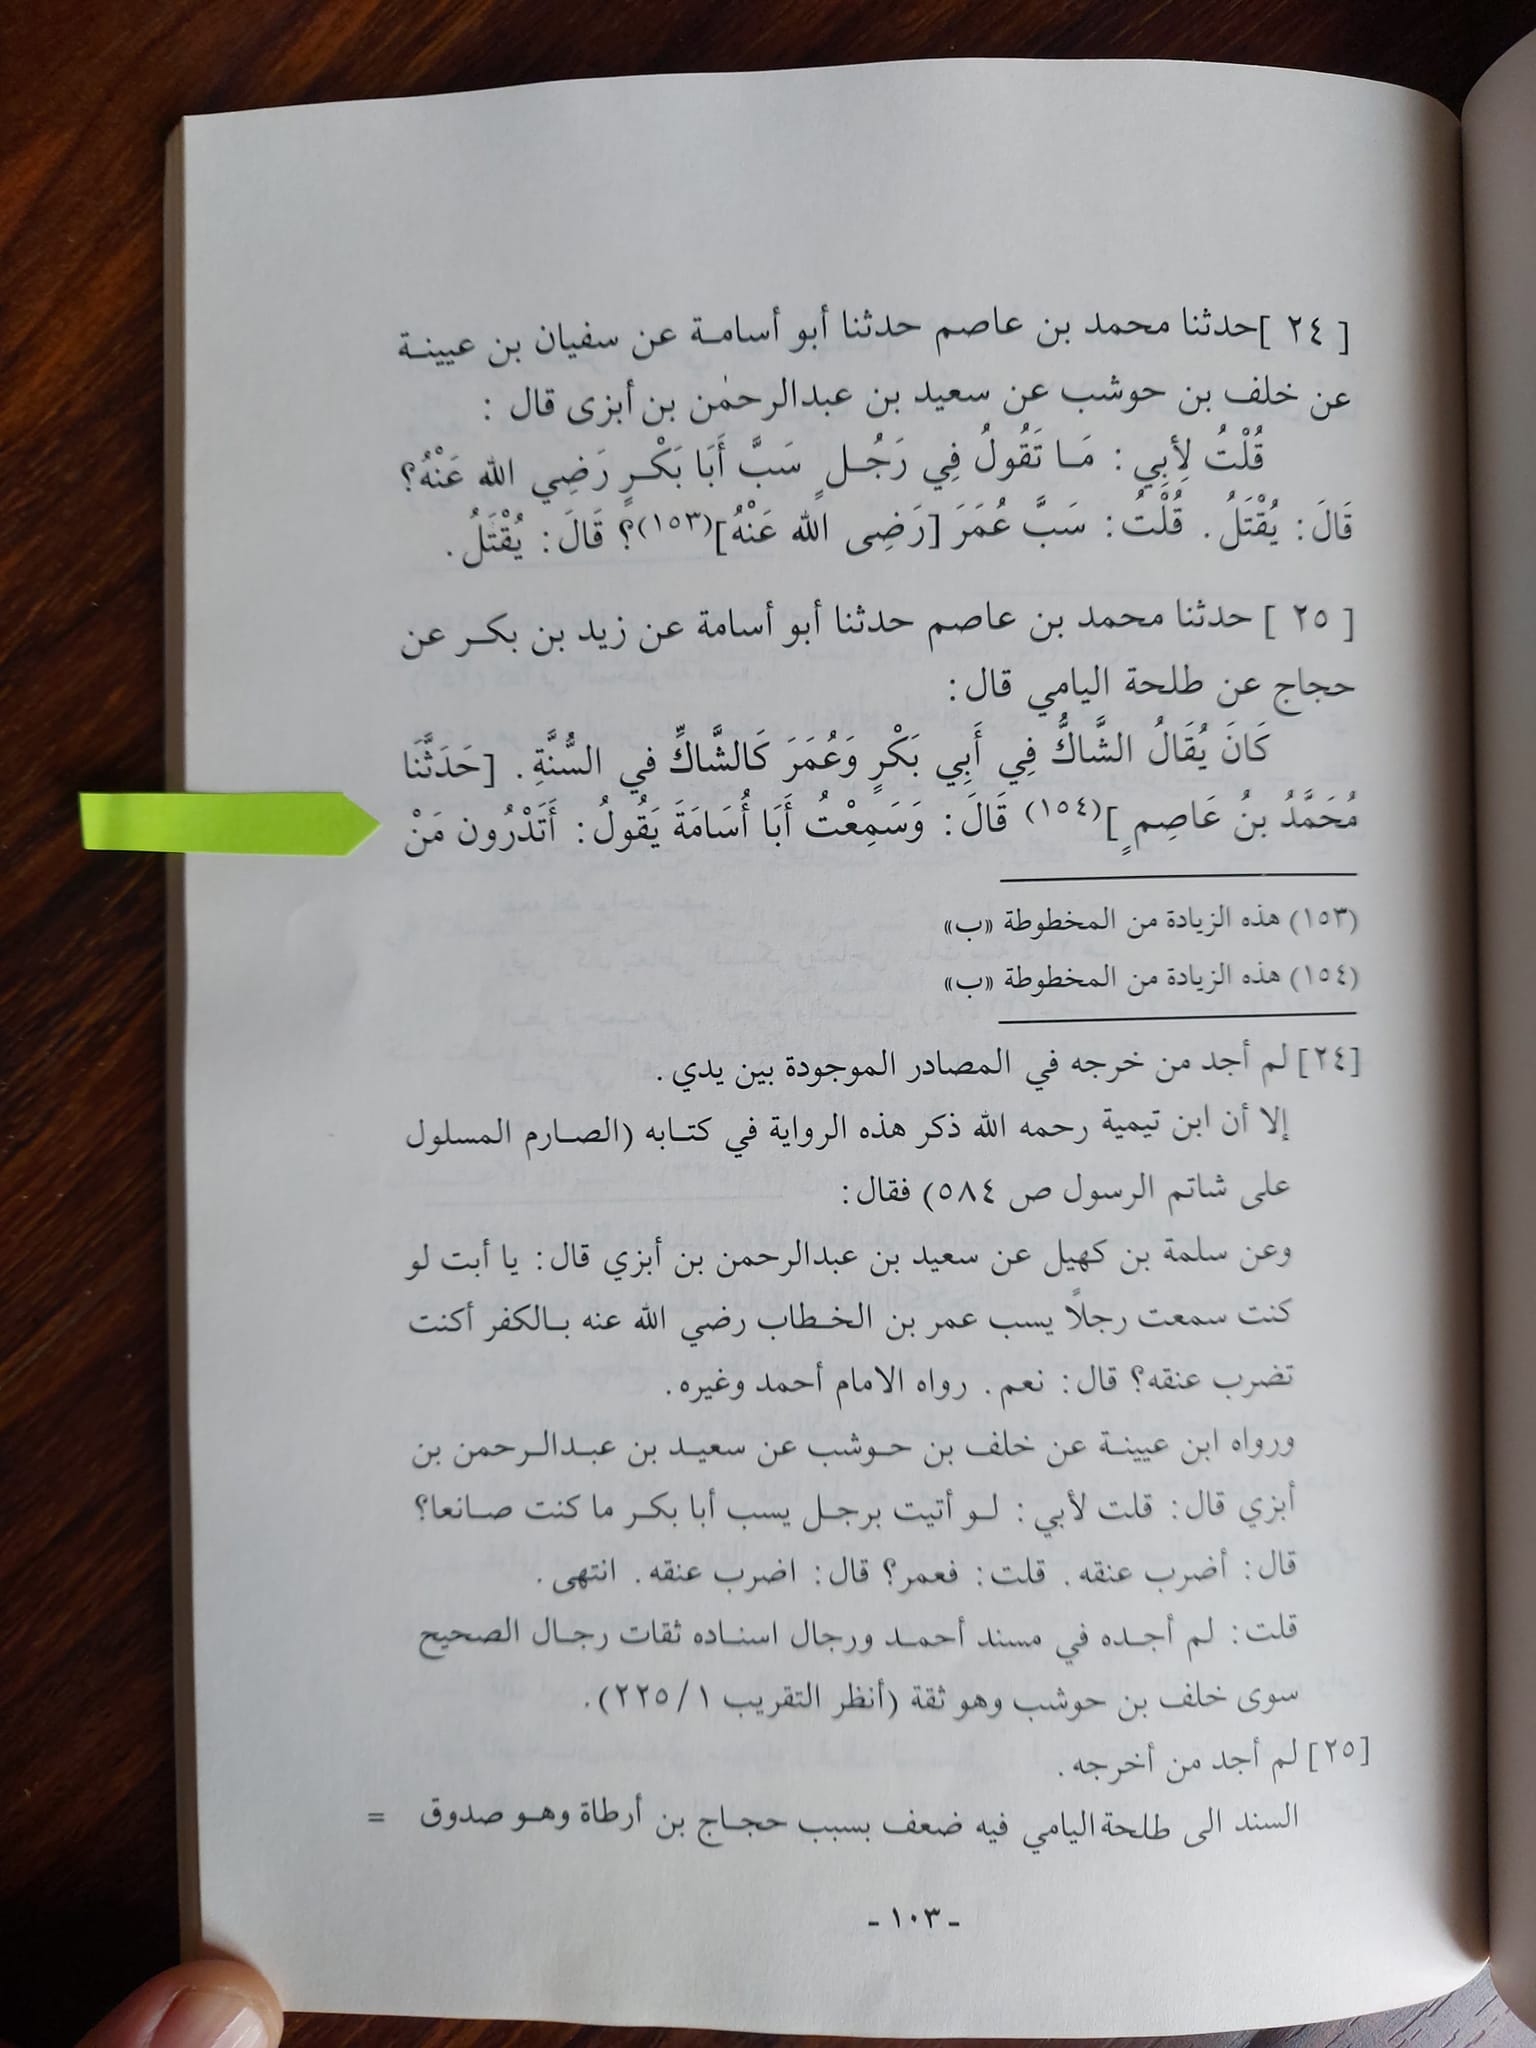 [ ٢٤ ]حدثنا محمد بن عاصم حدثنا أبو أسامـة عن سفيان بن عيينـة
عن خلف بن حوشب عن سعيد بن عبدالرحمٰن بن أبزى قال :
قُلْتُ لِأبِي : مَـا تَقُولُ فِي رَجُـلٍ سَبَّ أَبَا بَكْـرٍ رَضِي الله عَنْهُ؟
قَالَ : يُقْتَلُ . قُلْتُ : سَبَّ عُمَرَ [رَضِى الله عَنْهُ](١٥٣)؟ قَالَ : يُقْتَلُ .
[ ٢٥ ] حدثنا محمد بن عاصم حدثنا أبو أسامة عن زيد بن بكـر عن
حجاج عن طلحة اليامي قال :
كَانَ يُقَالُ الشَّاكُّ فِي أَبِي بَكْرٍ وَعُمَرَ كَالشَّاكِّ في السُّنَّةِ . [حَدَثَّنَا
مُحَمَّدُ بنُ عَاصِمٍ ](١٥٤) قَالَ : وَسَمِعْتُ أَبَا أُسَامَةَ يَقُولُ : أَتَدْرُون مَنْ
(١٥٣) هذه الزيادة من المخطوطة «ب»
(١٥٤) هذه الزيادة من المخطوطة «ب»
[٢٤] لم أجد من خرجه في المصادر الموجودة بين يدي .
إلا أن ابن تيمية رحمه الله ذكر هذه الرواية في كتـابه (الصـارم المسلول
على شاتم الرسول ص ٥٨٤) فقال :
وعن سلمة بن كهيل عن سعيد بن عبدالرحمن بن أبزي قال : يا أبت لو
كنت سمعت رجلاً يسب عمر بن الخـطاب رضي الله عنه بـالكفر أكنت
تضرب عنقه؟ قال : نعم . رواه الامام أحمد وغيره .
ورواه ابن عيينـة عن خلف بن حـوشب عن سعيـد بن عبـدالـرحمن بن
أبزي قال : قلت لأبي : لـو أتيت برجـل يسب أبا بكـر ما كنت صـانعا؟
قال : أضرب عنقه . قلت : فعمر؟ قال : اضرب عنقه . انتهى .
قلت : لم أجـده في مسند أحمـد ورجال اسنـاده ثقات رجـال الصحيح
سوى خلف بن حوشب وهو ثقة (أنظر التقريب ١ / ٢٢٥) .
[٢٥] لم أجد من أخرجه .
السند الى طلحة اليامي فيه ضعف بسبب حجـاج بن أرطاة وهـو صدوق =
- ١٠٣ -